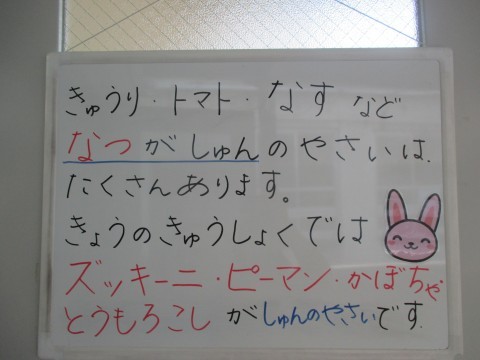 きゅうり・トマト・なす など
なつがしゅんのやさいは、
たくさんあります。
きょうのきゅうしょくでは
ズッキーニ・ピーマン・かぼちゃ
とうもろこし がしゅんのやさいです。